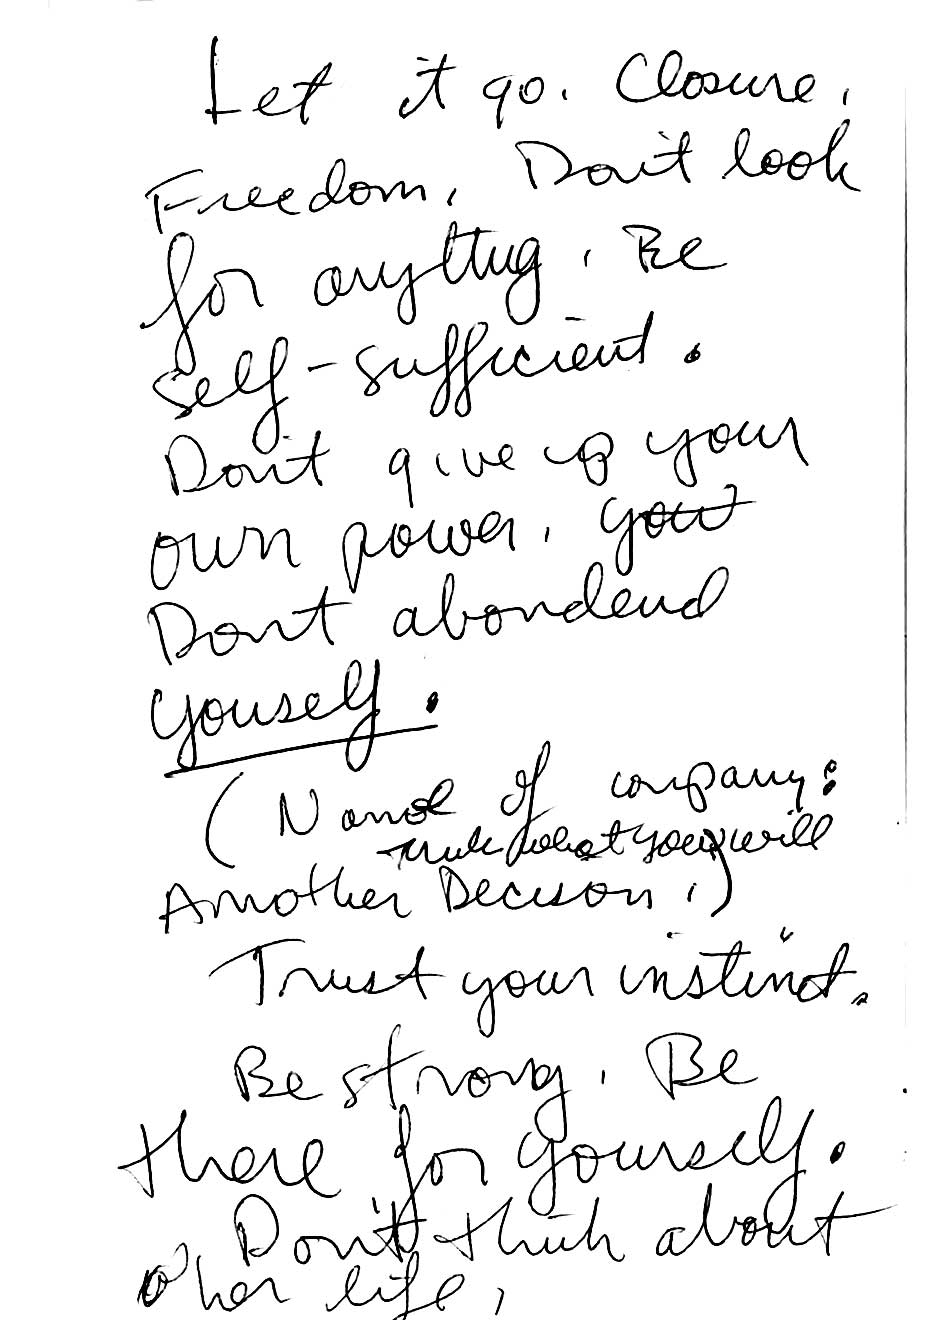 Let it go. Closure.
Freedom. Don't look
for anything. Be
self-sufficient.
Don't give up your
own power. you
Don't abondend
youself.
(Name of company:
think what you will
Another Decison.)
Trust your instinct.
Be strong. Be
there for yourself.
Don't think about
her life,